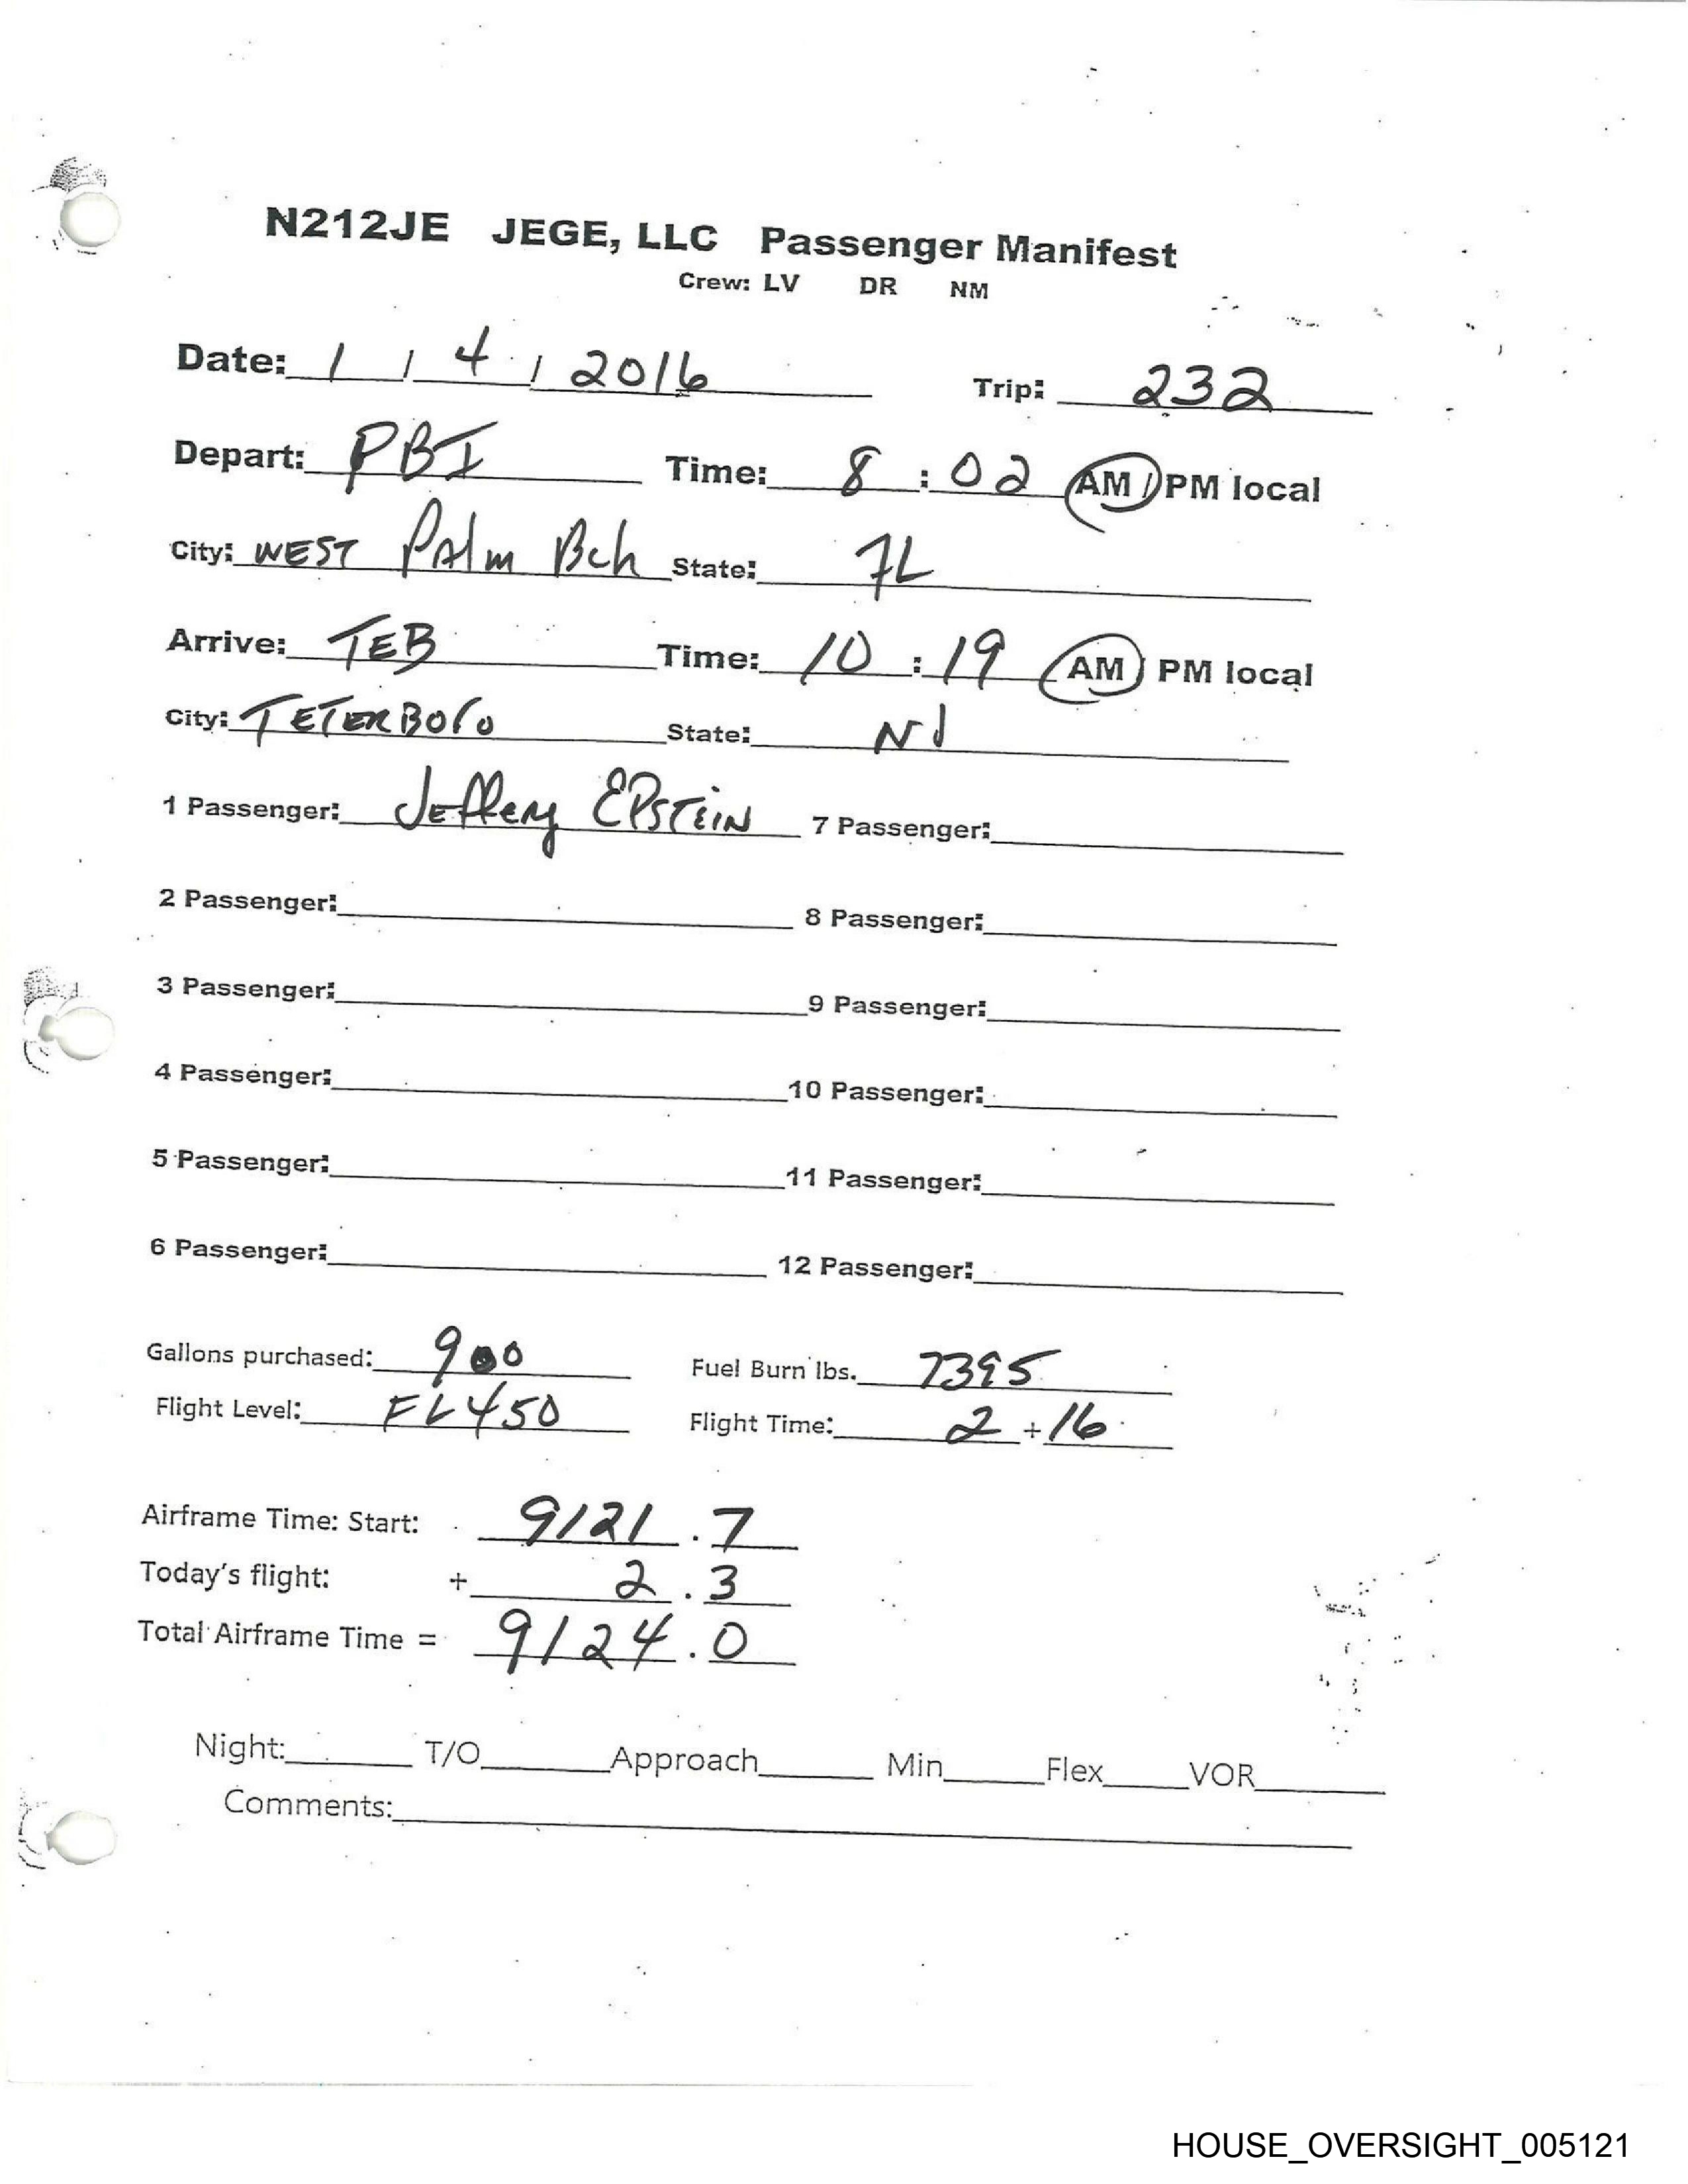 N212JE JEGE, LLC Passenger Manifest
Crew: LV DR NM
Date: 1 / 4 / 2016 Trip: 232
Depart: PBI Time: 8 : 02 AM / PM local
City: WEST PAlm Bch State: FL
Arrive: TEB Time: 10 : 19 AM / PM local
City: TETERBORO State: NJ
1 Passenger: Jeffery EPSTEIN 7 Passenger:
2 Passenger: 8 Passenger:
3 Passenger: 9 Passenger:
4 Passenger: 10 Passenger:
5 Passenger: 11 Passenger:
6 Passenger: 12 Passenger:
Gallons purchased: 900 Fuel Burn lbs. 7395
Flight Level: FL450 Flight Time: 2 + 16
Airframe Time: Start: 9121 . 7
Today's flight: + 2 . 3
Total Airframe Time = 9124 . 0
Night: T/O Approach Min Flex VOR
Comments:
HOUSE_OVERSIGHT_005121